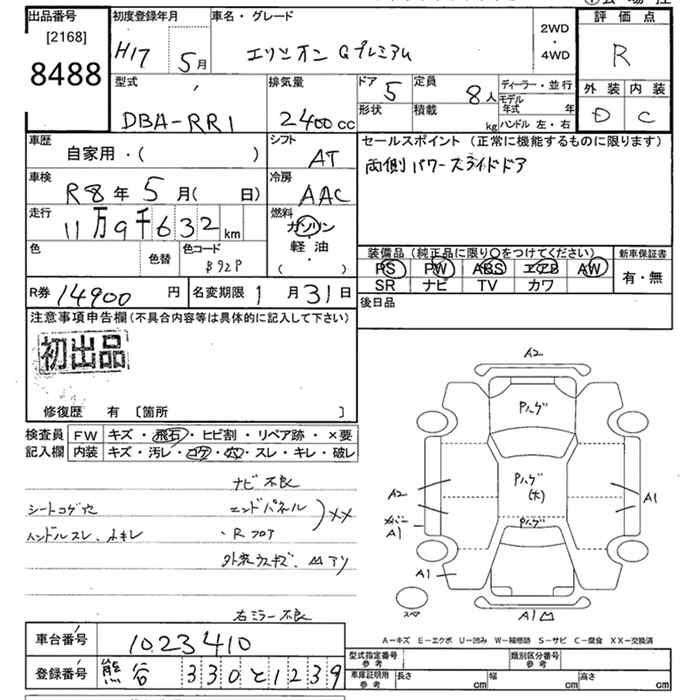 出品番号 初度登録年月 車名・グレード 評価点
[2168]
8488
H17 5月 エリシオン Gプレミアム 2WD・4WD R
型式 排気量 ドア 5 定員 8人 ディーラー・並行 外装 内装
DBA-RR1 2400cc 形状 積載 kg モデル年式 年 D C
ハンドル 左・右
車歴 シフト セールスポイント(正常に機能するものに限ります)
自家用・( ) AT 両側パワースライドドア
車検 冷房
R8年5月( 日) AAC
走行 燃料
11万9千632km ガソリン
軽油
( ・ )
色 色替 色コード 装備品(純正品に限り〇をつけてください) 新車保証書
B92P PS PW ABS エアB AW 有・無
SR ナビ TV カワ
R券 14900円 名変期限 1月31日 後日品
注意事項申告欄(不具合内容等は具体的に記入して下さい)
初出品
修復歴 有〔箇所 〕
検査員 FW キズ・飛石・ヒビ割・リペア跡・×要
記入欄 内装 キズ・汚レ・コゲ・穴・スレ・キレ・破レ
ナビ不良
シートコゲ穴 エンドパネル
ハンドルスレ、 ・Rフロア XX
外装ウスキズ、凹アリ
右ミラー不良
A2
Pハゲ
Pハゲ
(大)
Pハゲ
A2
A1
A1
A1
A1凹
スペア
A-キズ E-エクボ U-凹み W-補修跡 S-サビ C-腐食 XX-交換済
車台番号 1023410
型式指定番号 参考 類別区分番号 参考
登録番号 熊谷 330と1239
車庫証明用 参考 長さ cm 幅 cm 高さ cm